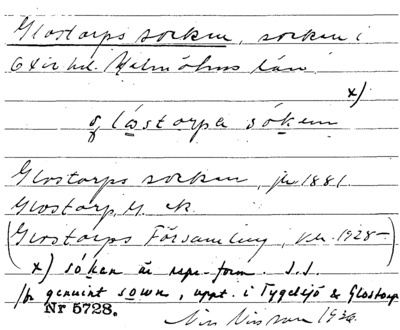 Glostorps socken, socken i
Oxie hd. Malmöhus län.
x)
glåstorpa sókem
Glostorps socken, jb 1881.
Glostorp, G. K.
(Glostorps Församling, 1928-)
x) sóken är repr-form. I.I.
genuint sown, uppt. i Tygelsjö & Glostorp
Nr 5728.
Nils Nilsson 193